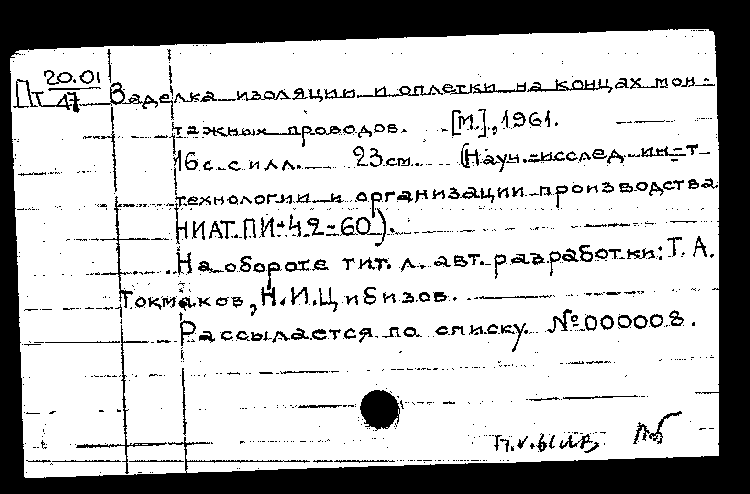 Пт 20.01
17 Заделка изоляции и оплетки на концах мон-
тажных проводов. [М.], 1961.
16 с. с илл. 23 см. (Науч.-исслед. ин-т
технологии и организации производства
НИАТ. ПИ-42-60).
На обороте тит. л. авт. разработки: Т. А.
Токмаков, Н. И. Цибизов.
Рассылается по списку. № 000008.